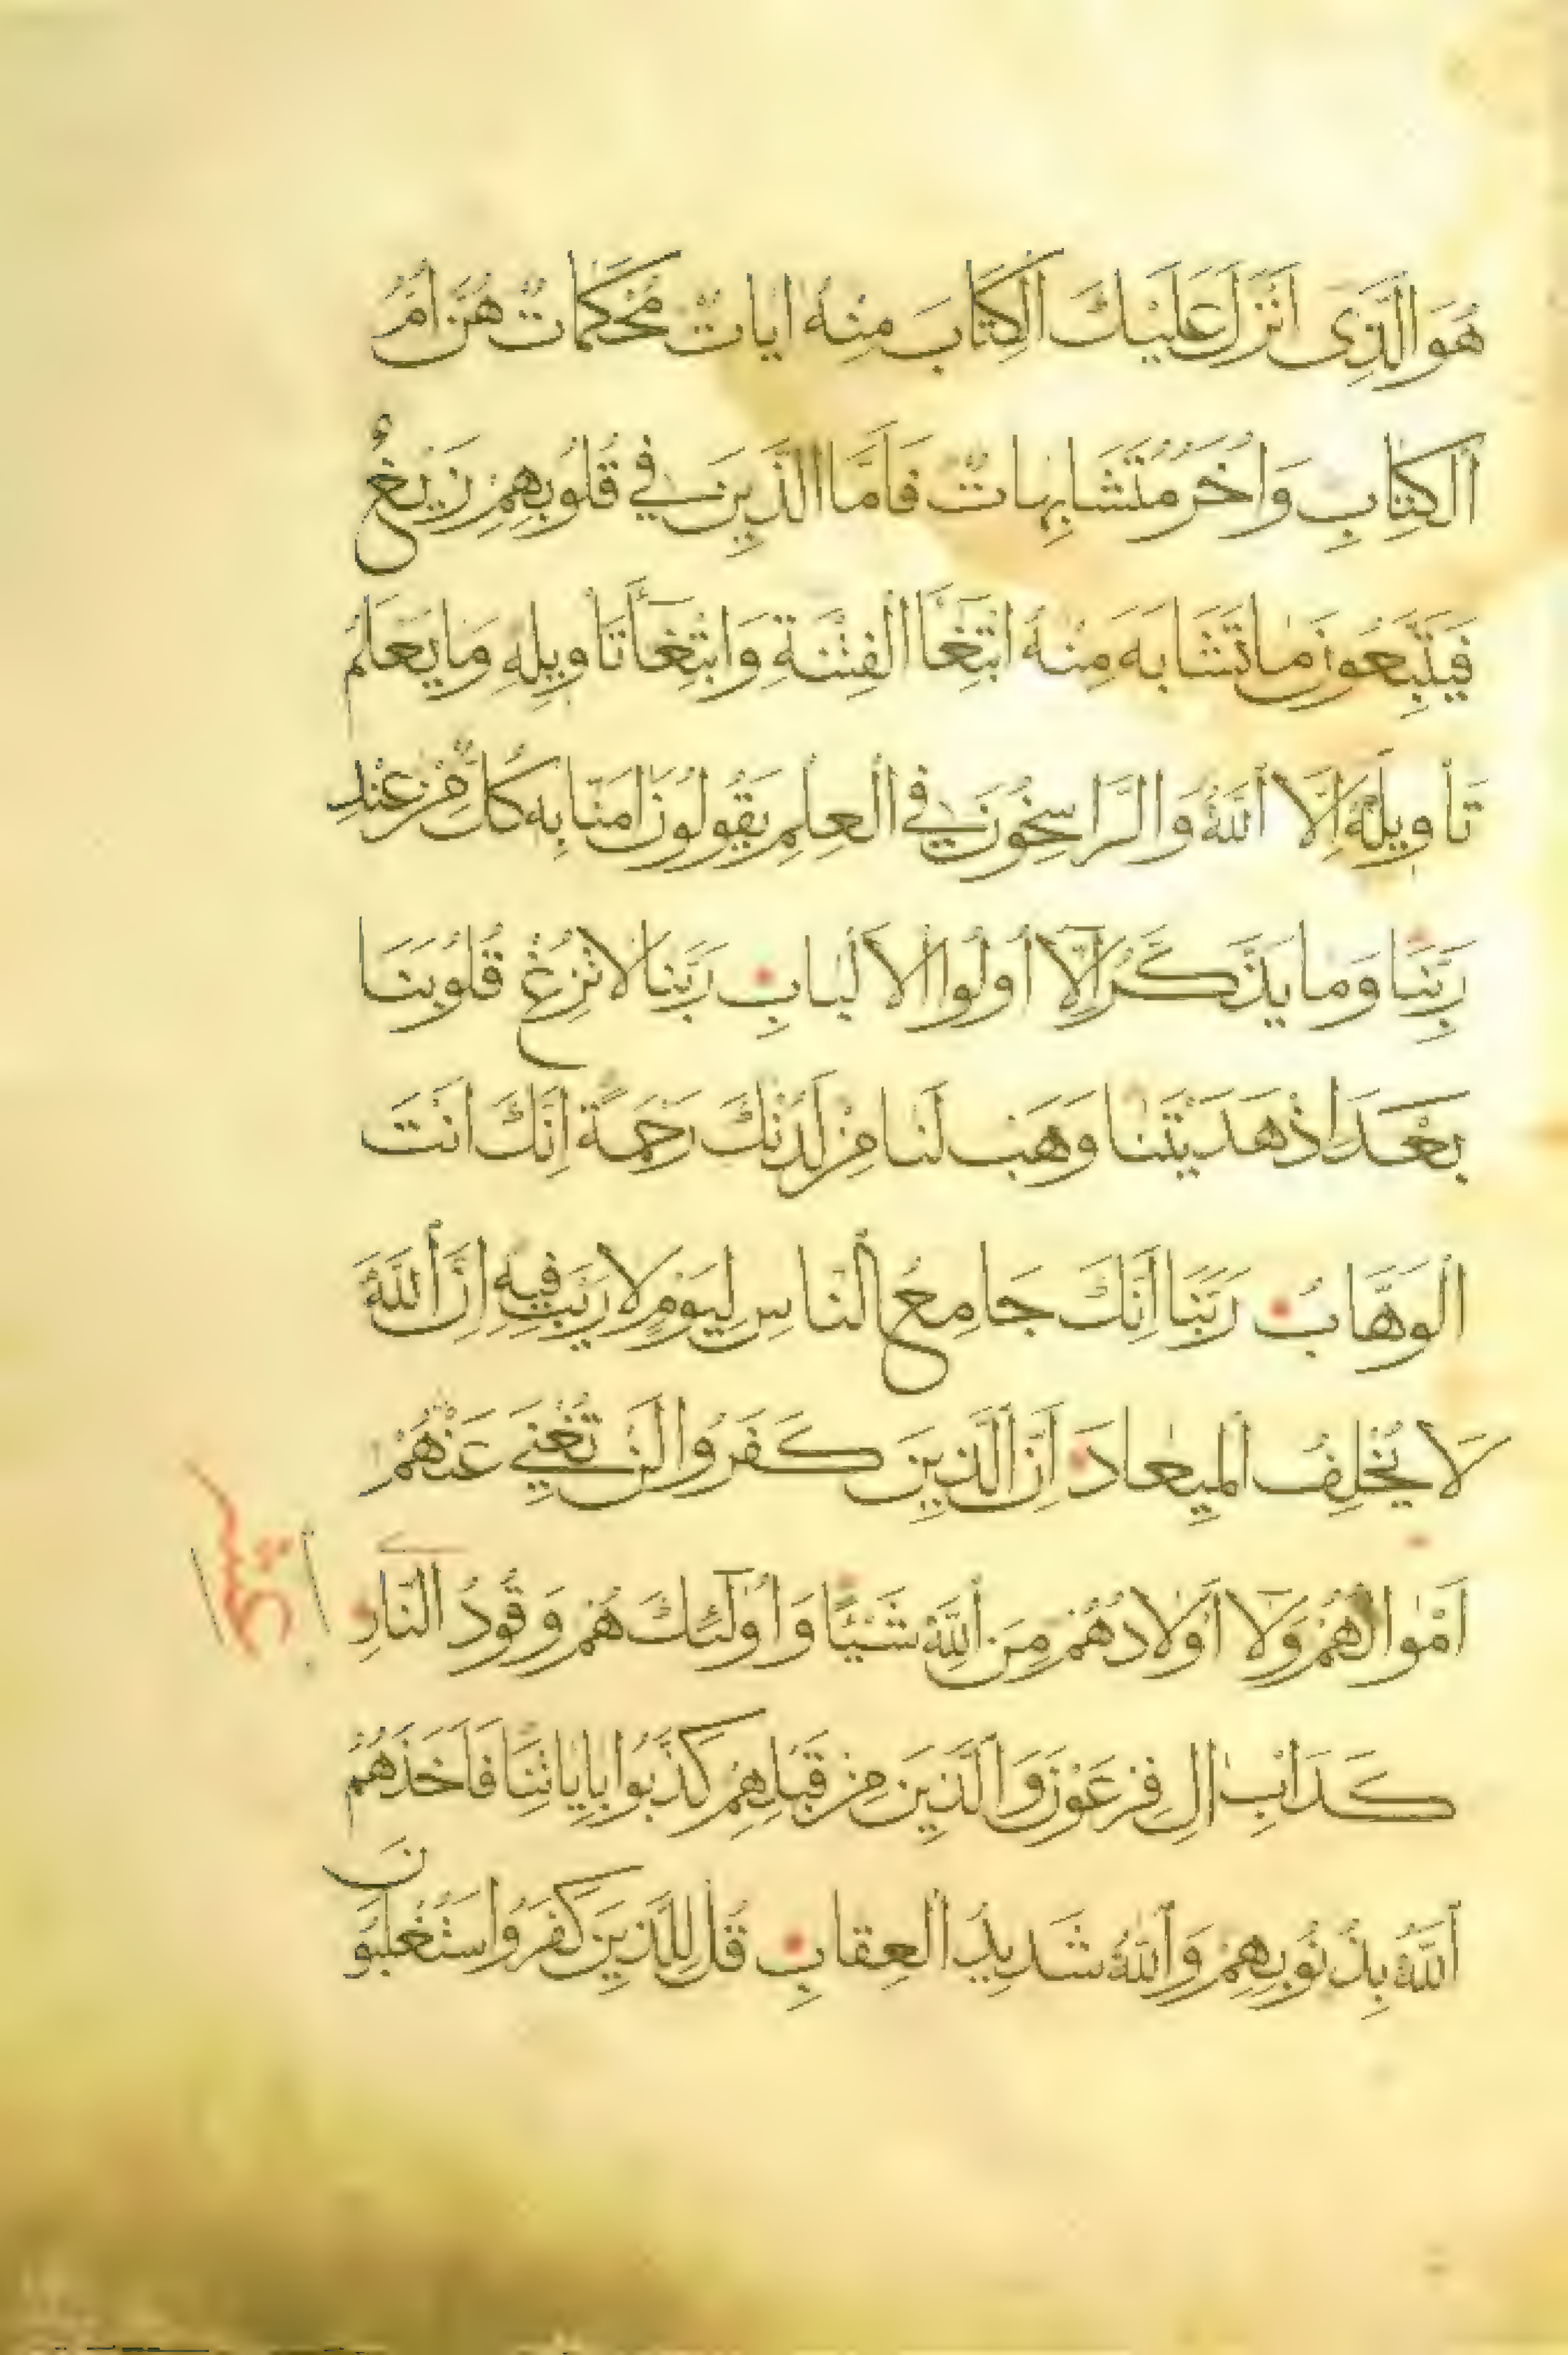 هُوَ الَّذِى اَنْزَلَ عَلَيْكَ اَلْكِتَابَ مِنْهُ اٰيَاتٌ مُحْكَمَاتٌ هُنَّ اُمُّ
اَلْكِتَابِ وَاُخَرُ مُتَشَابِهَاتٌ فَاَمَّا الَّذِينَ فِي قُلُوبِهِمْ زَيْغٌ
فَيَتَّبِعُونَ مَا تَشَابَهَ مِنْهُ ابْتِغَآ الْفِتْنَةِ وَابْتِغَآءَ تَاْوِيلِهِ وَمَا يَعْلَمُ
تَاْوِيلَهُ اِلَّا اَللّٰهُ وَالرَّاسِخُونَ فِي الْعِلْمِ يَقُولُونَ اٰمَنَّا بِهِ كُلٌّ مِّنْ عِنْدِ
رَبِّنَا وَمَا يَذَّكَّرُ اِلَّآ اُولُوا الْاَلْبَابِ رَبَّنَا لَا تُزِغْ قُلُوبَنَا
بَعْدَ اِذْ هَدَيْتَنَا وَهَبْ لَنَا مِنْ لَدُنْكَ رَحْمَةً اِنَّكَ اَنْتَ
الْوَهَّابُ رَبَّنَا اِنَّكَ جَامِعُ النَّاسِ لِيَوْمٍ لَا رَيْبَ فِيهِ اِنَّ اَللّٰهَ
لَا يُخْلِفُ الْمِيعَادَ اِنَّ الَّذِينَ كَفَرُوا لَنْ تُغْنِيَ عَنْهُمْ
اَمْوَالُهُمْ وَلَآ اَوْلَادُهُمْ مِنَ اَللّٰهِ شَيْئًا وَاُولٰٓئِكَ هُمْ وَقُودُ النَّارِ
كَدَاْبِ اٰلِ فِرْعَوْنَ وَالَّذِينَ مِنْ قَبْلِهِمْ كَذَّبُوا بِاٰيَاتِنَا فَاَخَذَهُمُ
اَللّٰهُ بِذُنُوبِهِمْ وَاَللّٰهُ شَدِيدُ الْعِقَابِ قُلْ لِلَّذِينَ كَفَرُوا سَتُغْلَبُونَ